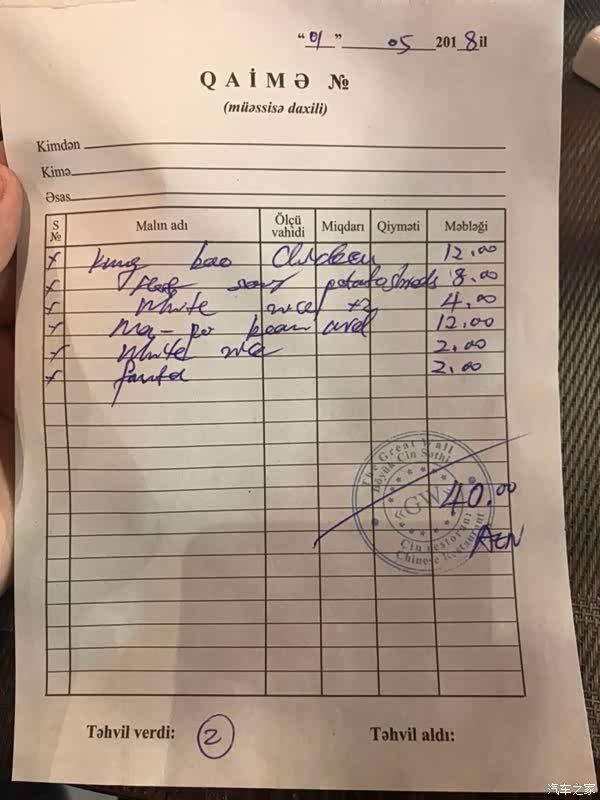 “01” 05 2018 il
QAİMƏ №
(müəssisə daxili)
Kimdən
Kimə
Əsas
S № Malın adı Ölçü vahidi Miqdarı Qiyməti Məbləği
x kung bao Chicken 12.00
x sour potato shreds 8.00
x white rice x2 4.00
x Ma-po bean curd 12.00
x white rice 2.00
x fanta 2.00
The Great Wall
Böyük Çin Səddi
«GW»
Çin restoranı
Chinese Restaurant
40.00
AZN
Təhvil verdi: 2 Təhvil aldı:
汽车之家